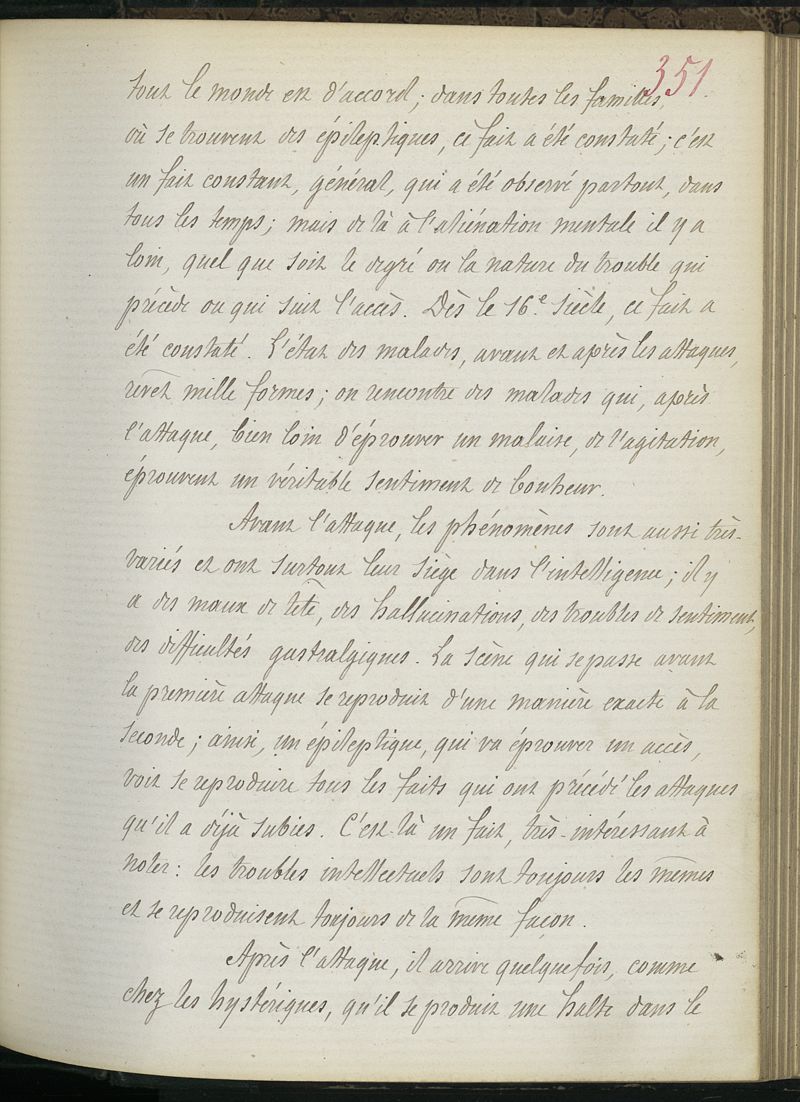 351
tout le monde est d'accord ; dans toutes les familles,
où se trouvent des épileptiques, ce fait a été constaté ; c'est
un fait constant, général, qui a été observé partout, dans
tous les temps ; mais de là à l'aliénation mentale il y a
loin, quel que soit le degré ou la nature du trouble qui
précède ou qui suit l'accès. Dès le 16e. siècle, ce fait a
été constaté. L'état des malades, avant et après les attaques,
revêt mille formes ; on rencontre des malades qui, après
l'attaque, bien loin d'éprouver un malaise, de l'agitation,
éprouvent un véritable sentiment de bonheur.
Avant l'attaque, les phénomènes sont aussi très-
variés et ont surtout leur siège dans l'intelligence ; il y
a des maux de tête, des hallucinations, des troubles de sentiment,
des difficultés gastralgiques. La scène qui se passe avant
la première attaque se reproduit d'une manière exacte à la
seconde ; ainsi, un épileptique, qui va éprouver un accès,
voit se reproduire tous les faits qui ont précédé les attaques
qu'il a déjà subies. C'est là un fait, très-intéressant à
noter : les troubles intellectuels sont toujours les mêmes
et se reproduisent toujours de la même façon.
Après l'attaque, il arrive quelquefois, comme
chez les hystériques, qu'il se produit une halte dans le